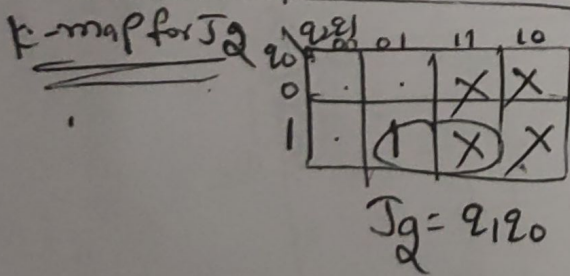 K-map for J2 q2q1
q0 00 01 11 10
0 . . X X
1 . 1 X X
J2 = q1q0